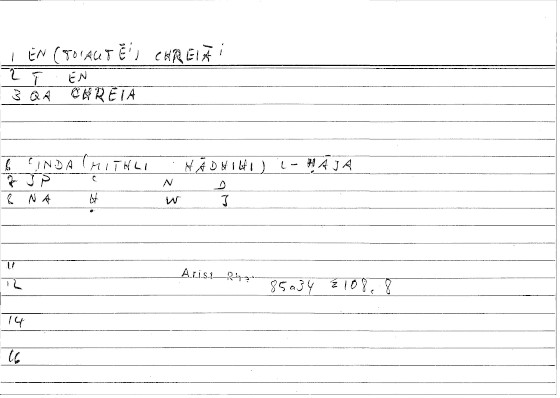 1 EN (TOIAUTĒⁱ) CHREIĀⁱ
2 T EN
3 QA CHREIA
6 ʿINDA (MITHLI HĀDHIHI) L-ḤĀJA
7 JP ʿ N D
8 NA Ḥ W J
11
12 Arist 85a34 ≅ 108.8
14
16